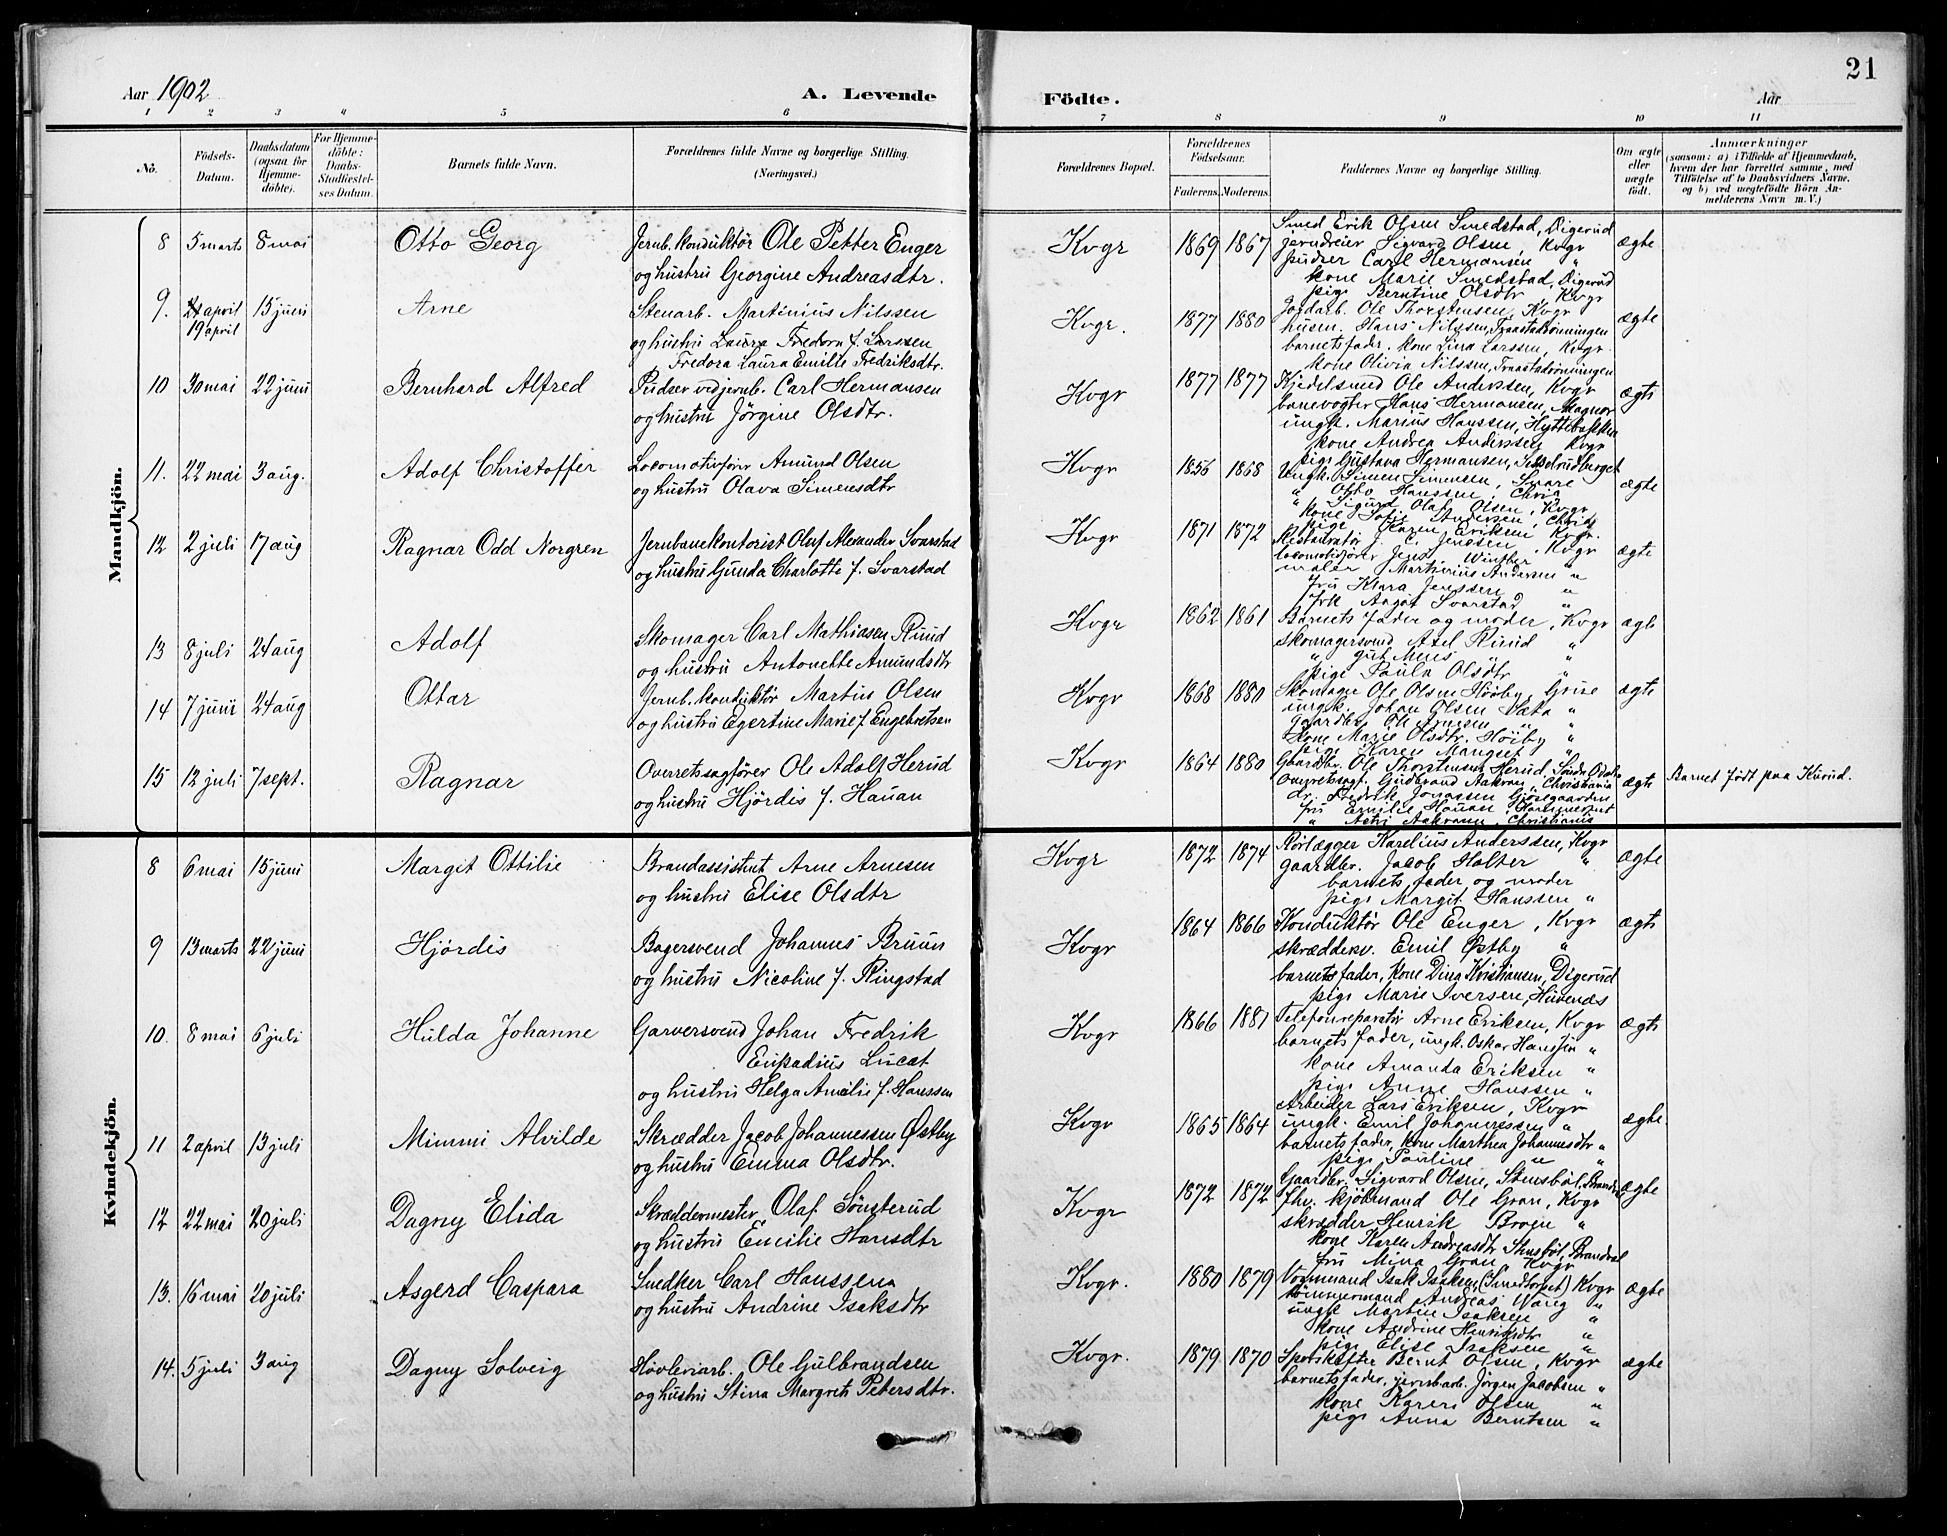 Aar 1902
A. Levende
Födte.
Aar
21
1 2 3 4 5 6 7 8 9 10 11
No.
Födsels-Datum.
Daabsdatum (ogsaa for Hjemme-döbte).
For Hjemme-döbte: Daabs-Stadfæstelses Datum.
Barnets fulde Navn.
Forældrenes fulde Navne og borgerlige Stilling. (Næringsvei.)
Forældrenes Bopæl.
Forældrenes Födselsaar.
Faderens. Moderens.
Faddernes Navne og borgerlige Stilling.
Om ægte eller uægte födt.
Anmærkninger
(saasom: a) i Tilfælde af Hjemmedaab,
hvem der har forrettet samme, med
Tilföielse af to Daabsvidners Navne,
og b) ved uægtefödte Börn An-
melderens Navn m. V.)
Mandkjön.
8 5 marts 8 mai Otto Georg
Jernb. konduktör Ole Petter Enger
og hustru Georgine Andreasdtr.
Kvgr 1869 1867
Smed Erik Olsen Smedstad, Digerud
Sigvard Olsen, Kvgr
pudser Carl Hermansen "
kone Marie Smedstad, Digerud
pige Berntine Olsdtr, Kvgr
ægte
9. april 15 juni Arne
19 april
Stenarb. Martinius Nilssen
og hustru Laura Fredora f. Larssen
Fredora Laura Emilie Fredriksdtr.
Kvgr. 1877 1880
Jordarb. Ole Thorstensen, Kvgr
husm. Hans Nilssen,
barnets fader. kone Lina Larssen, Kvgr.
kone Olivia Nilssen,
ægte
10 30 mai 22 juni Bernhard Alfred
Pudser ved jernb. Carl Hermansen
og hustru Jörgine Olsdtr.
Kvgr 1877 1877
Kjedelsmed Ole Anderssen, Kvgr
banevogter Hans Hermansen, Magnor
ungk. Marius Hanssen, Hyttebakken
kone Andrea Anderssen Kvgr
pige Gustava Hermansen,
ægte
11. 22 mai 3 aug. Adolf Christoffer
Locomotivförer Amund Olsen
og hustru Olava Simensdtr
Kvgr 1856 1868
Ungk. Simen Simensen,
" Otto Hanssen, Chria
" Sigurd Olaf Olsen, Kvgr
kone Sofie Andersen, Chria
pige Karen Eriksen Kvgr.
ægte
12 2 juli 17 aug Ragnar Odd Norgren
Jernbanekontorist Oluf Alexander Svarstad
og hustru Gunda Charlotte f. Svarstad
Kvgr 1871 1872
Restauratör J. C. Jenssen, Kvgr
locomotivförer Jens Winther "
maler Martinius Andersen "
fru Klara Jenssen "
frk Aagot Svarstad "
ægte
13 8 juli 24 aug Adolf
Skomager Carl Mathiasen Ruud
og hustru Antonette Amundsdtr
Kvgr 1862 1861
Barnets fader og moder, Kvgr
skomagersvend Axel Ruud "
" gut Mens "
pige Paula Olsdtr "
ægte
14 7 juni 24 aug Ottar
Jernb. konduktör Martin Olsen
og hustru Egertine Marie f. Engebretsen
Kvgr 1868 1880
Skomager Ole Olsen Höiby, Grue
ungk. Johan Olsen Sæta "
gaardbr. Ole Arnesen "
kone Marie Olsdtr. Höiby "
pige Karen Mangset "
ægte
15 12 juli 7 sept. Ragnar
Overretssagförer Ole Adolf Herud
og hustru Hjördis f. Hauan
Kvgr 1864 1880
Gaardbr. Ole Thorstensen Herud,
Overretssagf. Gudbrand Aakrann, Christiania
dr. Fredrik Jonassen Gjösegaarden
fru Emilie Hauan, Hammerfest
" Astri Aakrann, Christiania
ægte
Barnet födt paa Kurud.
Kvindekjön.
8 6 mai 15 juni Margit Ottilie
Brandassistent Arne Arnesen
og hustru Elise Olsdtr
Kvgr 1872 1874
Rörlægger Karelius Anderssen, Kvgr
gaardbr. Jacob Holter "
barnets fader og moder
pige Margit Hanssen "
ægte
9 13 marts 22 juni Hjördis
Bagersvend Johannes Bruun
og hustru Nicoline f. Ringstad
Kvgr 1864 1866
Konduktör Ole Enger, Kvgr
skræddersv. Emil Østby "
barnets fader, kone Dina Kristiansen, Digerud
pige Marie Iversen,
ægte
10. 8 mai 6 juli Hulda Johanne
Garversvend Johan Fredrik
Enkadius Lucat
og hustru Helga Amalie f. Hanssen
Kvgr 1866 1881
Telefonreparatör Arne Eriksen, Kvgr
barnets fader, ungk. Oskar Hanssen "
kone Amanda Eriksen "
pige Anne Hanssen "
ægte
11 2 april 13 juli Mimmi Alvilde
Skrædder Jacob Johannessen Østby
og hustru Emma Olsdtr.
Kvgr 1865 1864
Arbeider Lars Eriksen, Kvgr
ungk. Emil Johannessen "
barnets fader, kone Marthea Johannesdtr "
pige Pauline " "
ægte.
12 22 mai 20 juli Dagny Elida
Skræddermester Olaf Sönsterud
og hustru Emilie Hansdtr
Kvgr 1872 1872
Gaardbr. Sigvard Olsen, Stensböl, Brandval
fhv. kjöbmand Ole Gran, Kvgr
skrædder Henrik Broen "
kone Karen Andreasdtr Stensböl, Brandval
fru Mina Gran, Kvgr
ægte
13. 16 mai 20 juli Asgerd Caspara
Snedker Carl Hanssen
og hustru Andrine Isaksdtr
Kvgr. 1880 1879
Vognmand Isak Isaksen (Smedtorpet) Kvgr
tömmermand Andreas Vang "
ungk Martin Isaksen "
kone Andrine Henriksdtr "
pige Elise Isaksen "
ægte
14. 5 juli 3 aug Dagny Solveig
Hövleriarb. Ole Gulbrandsen
og hustru Stina Margrete Petersdtr.
Kvgr. 1879 1870
Sporskifter Bernt Olsen, Kvgr
barnets fader, jernbarb. Jörgen Jacobsen "
kone Karen Olsen "
pige Anna Berntsen "
ægte